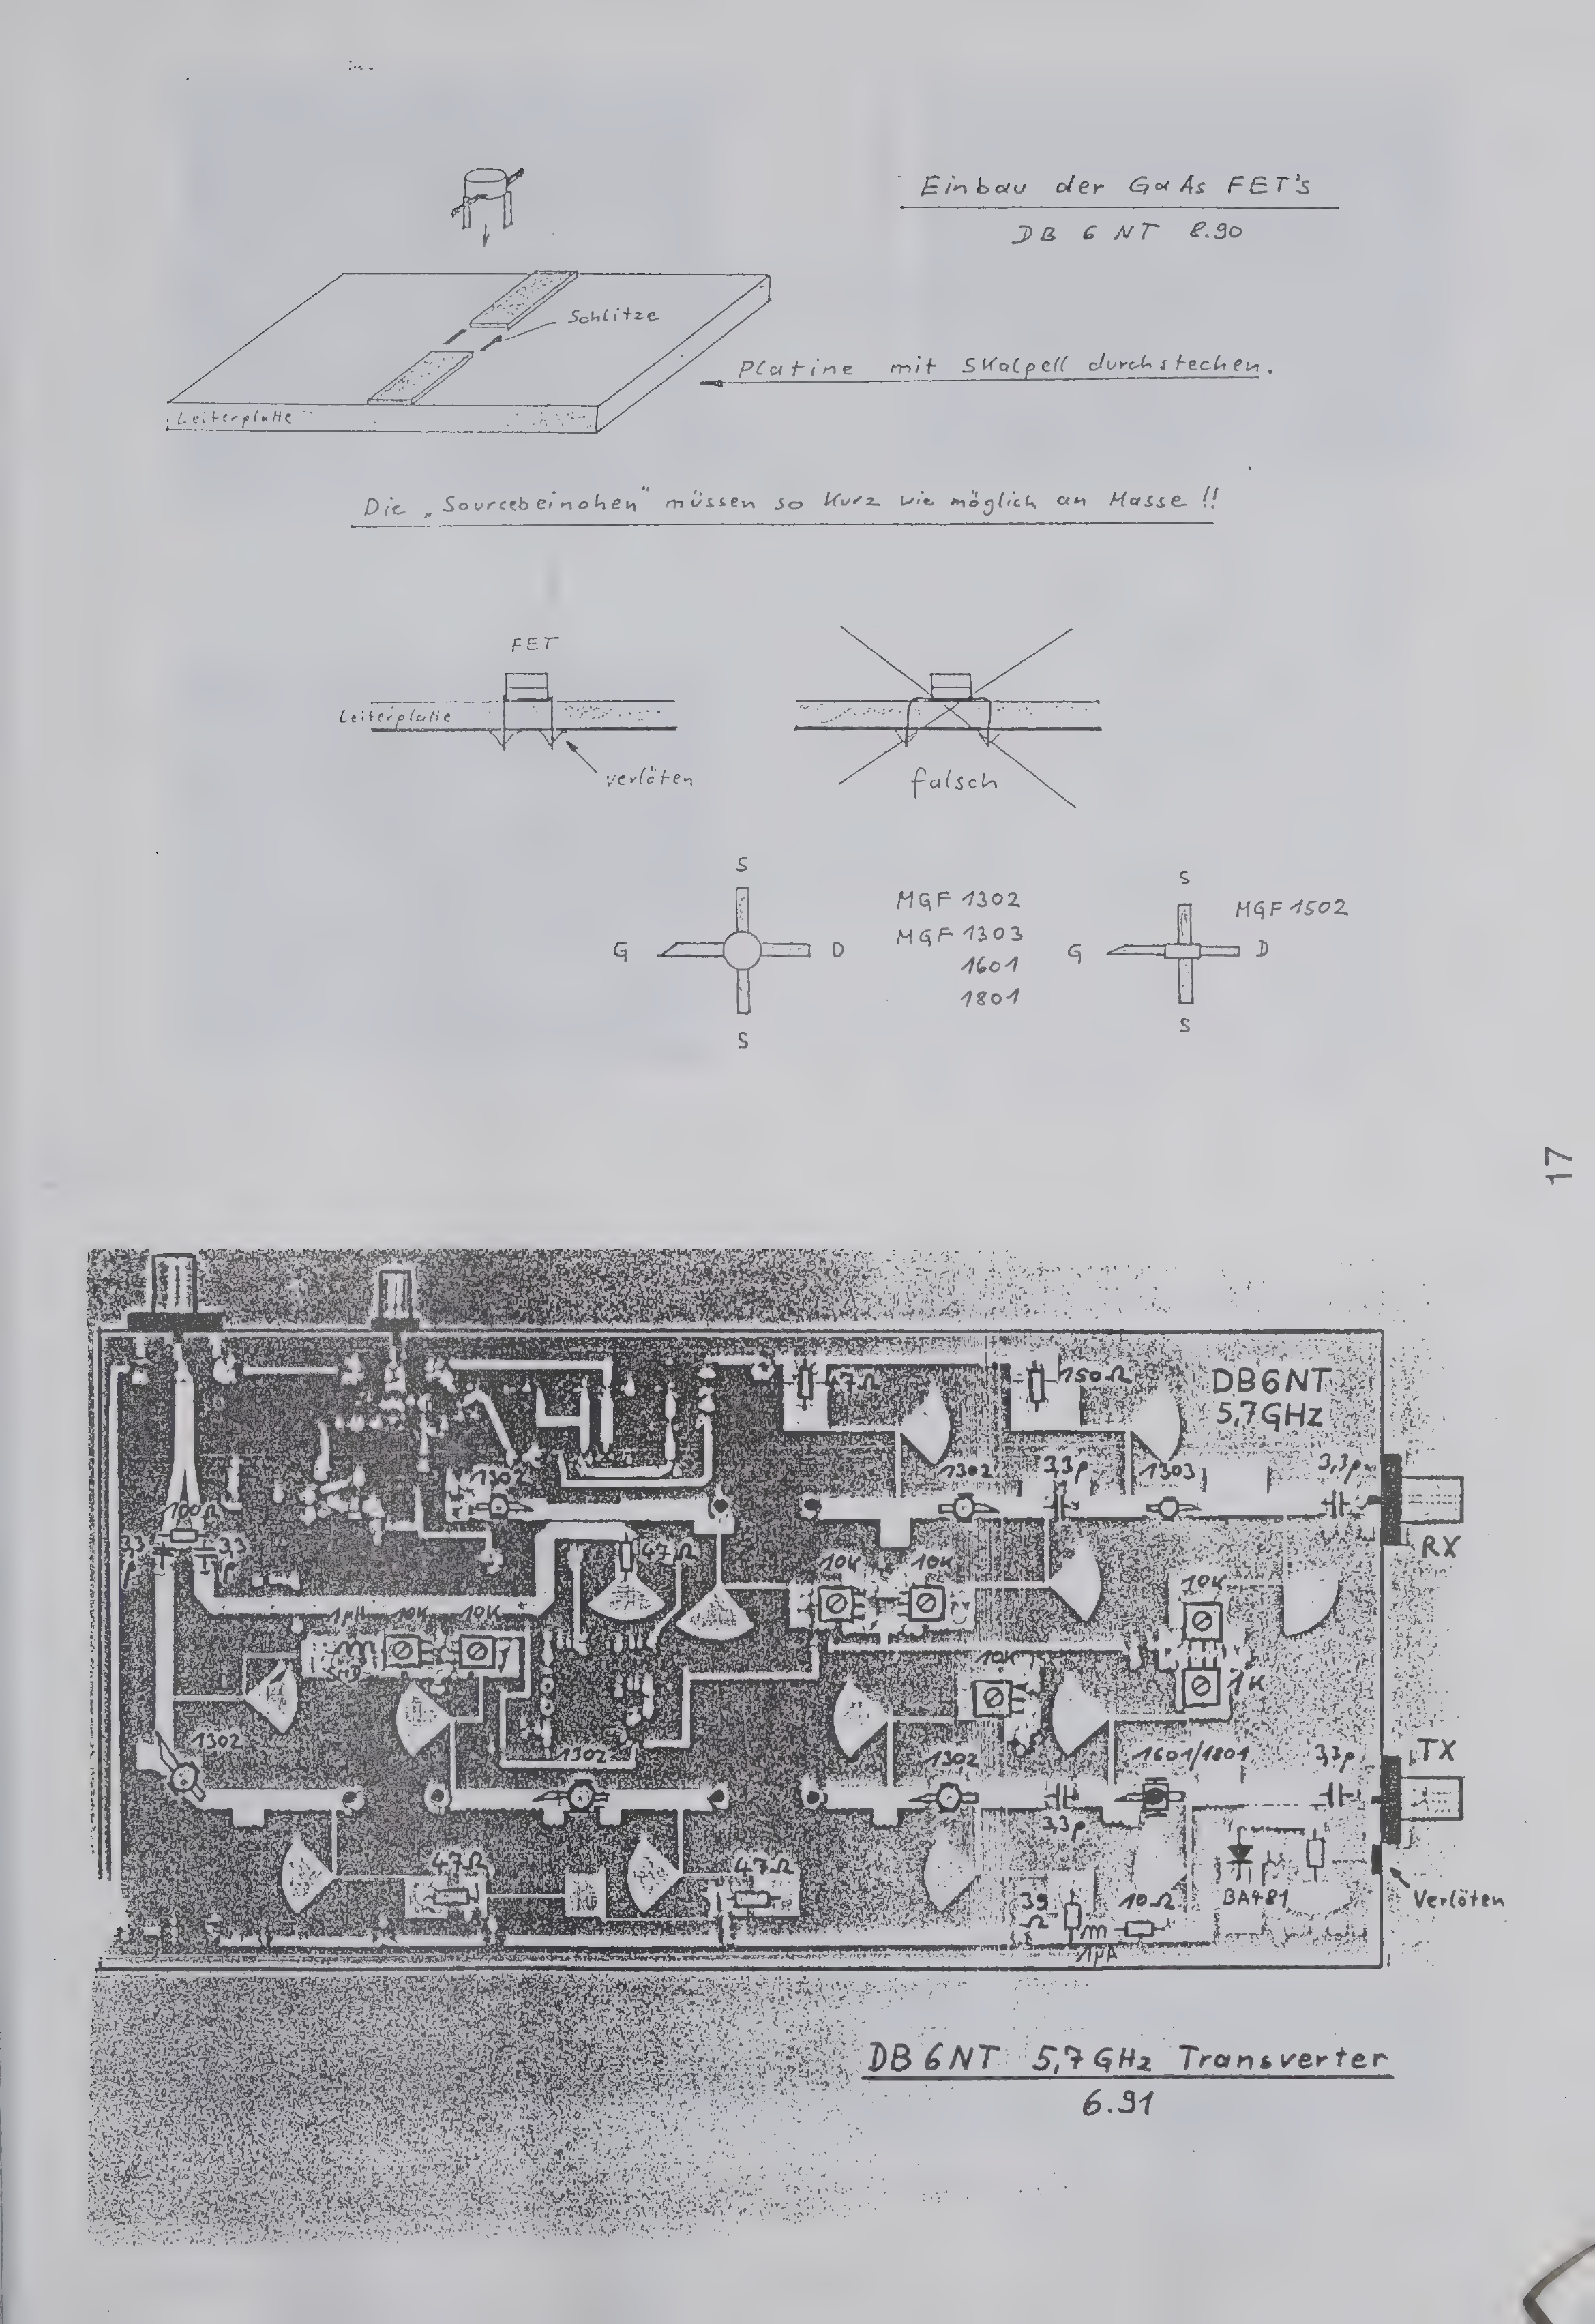 Einbau der GaAs FET's
DB 6 NT 8.90
Schlitze
Platine mit Skalpell durchstechen.
Leiterplatte
Die „Sourcebeinchen" müssen so kurz wie möglich an Masse !!
FET
Leiterplatte
verlöten
falsch
S
G
D
S
MGF 1302
MGF 1303
1601
1801
S
MGF 1502
G
D
S
17
47Ω
150Ω
DB6NT
5,7GHz
1302
1302
3,3p
1303
3,3p
100Ω
3,3
p
3,3
p
RX
47Ω
10K
10K
10K
1µH
10K
10K
SMD
10K
1K
1302
1302
1302
1601/1801
3,3p
TX
3,3p
47Ω
47Ω
39
Ω
10Ω
BA481
Verlöten
DB6NT 5,7GHz Transverter
6.91